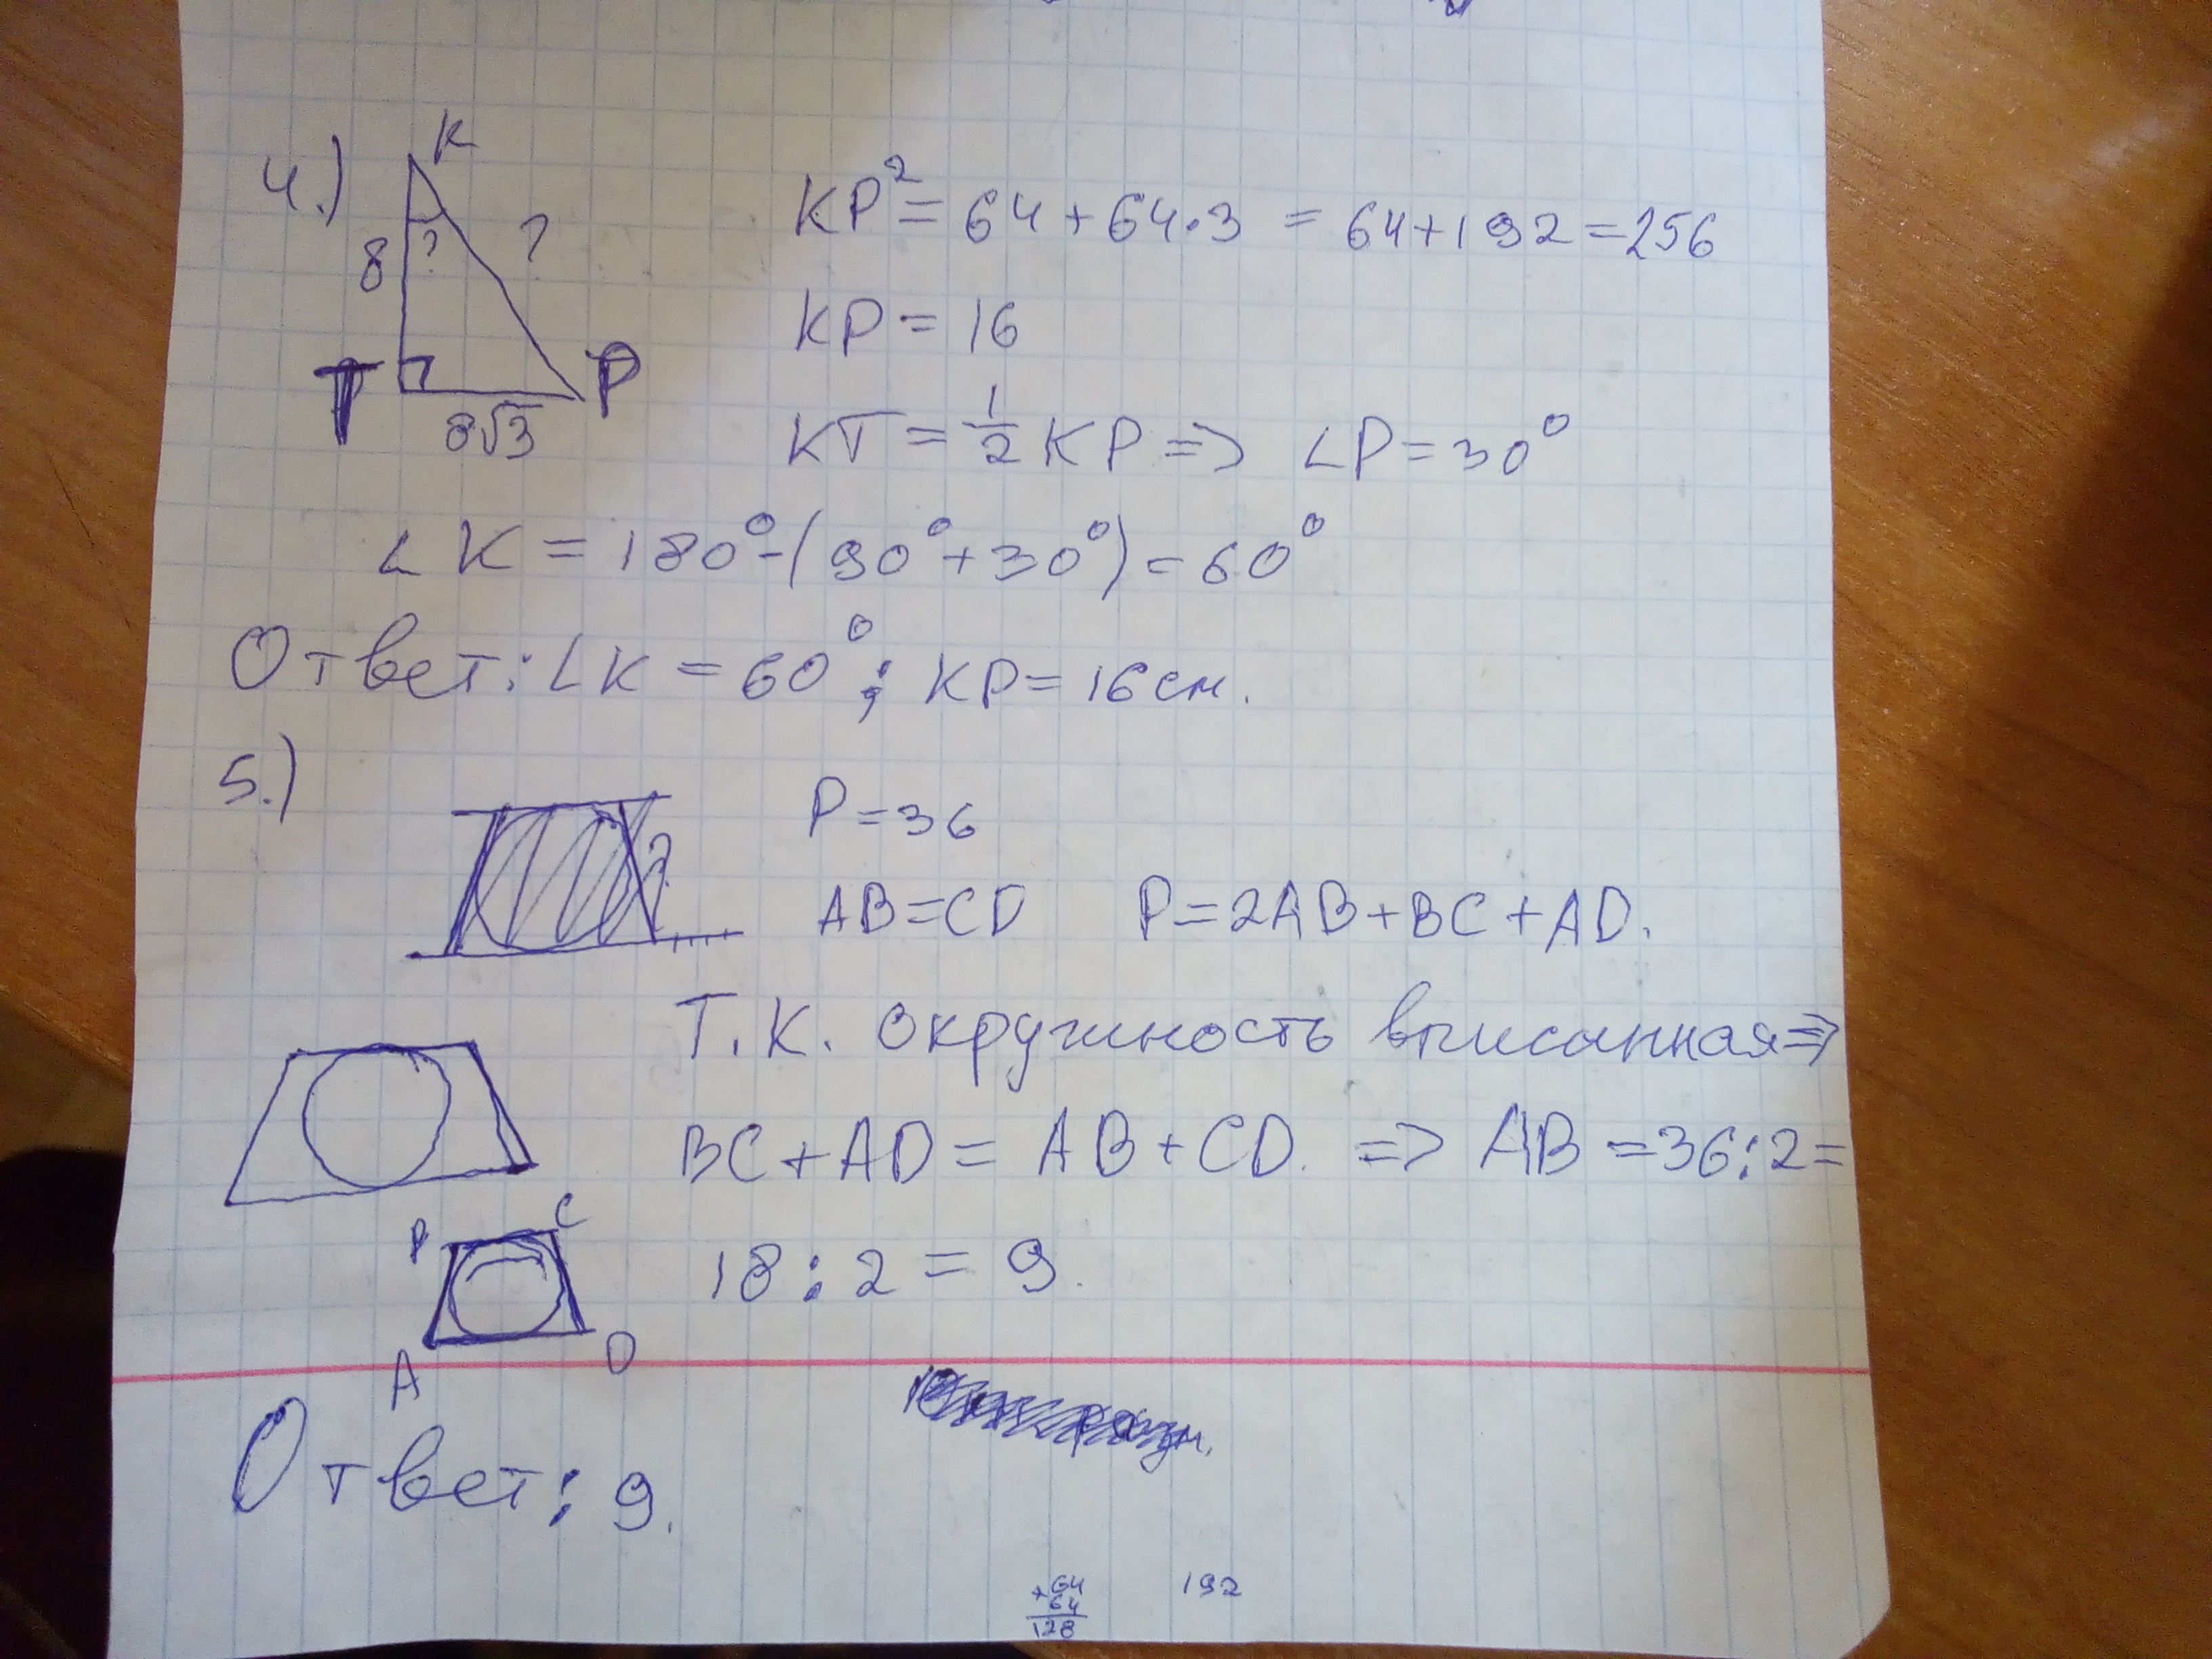 4.)
K
8
?
?
T
P
8√3
KP² = 64 + 64·3 = 64+192 = 256
KP = 16
KT = 1/2 KP => ∠P = 30°
∠K = 180° - (90° + 30°) = 60°
Ответ: ∠K = 60°; KP = 16 см.
5.)
?
P = 36
AB = CD P = 2AB + BC + AD.
Т.К. окружность вписанная =>
BC + AD = AB + CD. => AB = 36 : 2 =
18 : 2 = 9.
B
C
A
D
Ответ: 9.
+64
64
128
192